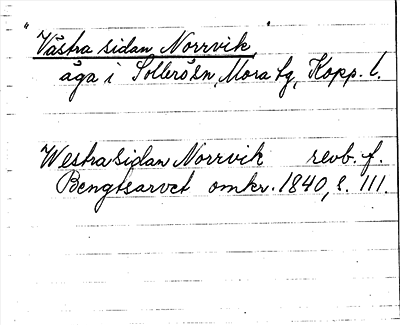 Västra sidan Norrvik,
äga i Sollerö sn, Mora tg, Kopp. l.
Westra sidan Norrvik revb. f.
Bengtsarvet omkr. 1840, s. 111.